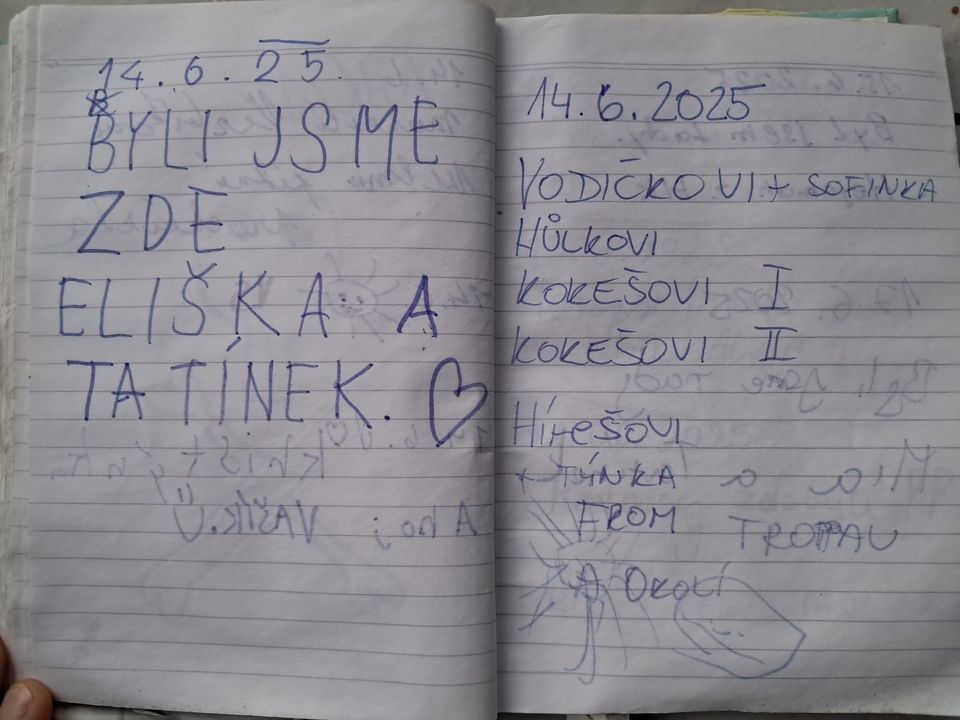 14.6.25
BYLI JSME
ZDE
ELIŠKA A
TATÍNEK.
14.6.2025
VODIČKOVI + SOFINKA
HŮLKOVI
KOKEŠOVI I
KOKEŠOVI II
HíREŠOVI
+ TÝNKA
FROM TROPPAU
A OKOLÍ